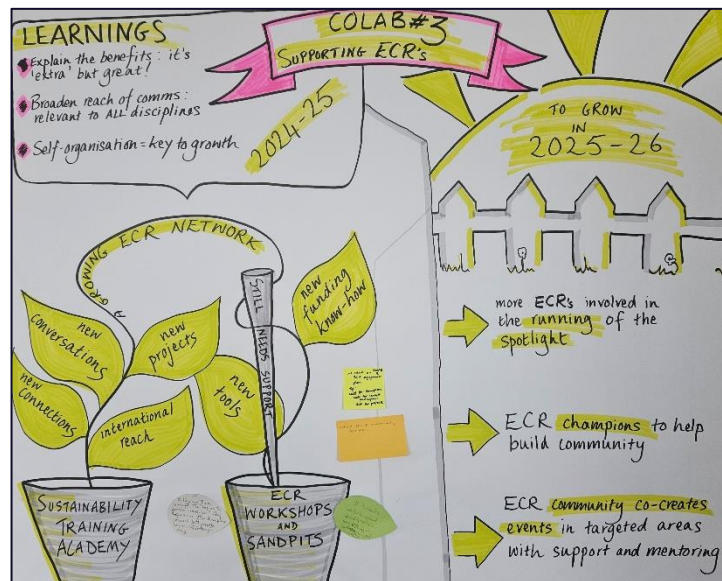 COLAB #3
SUPPORTING ECR's
LEARNINGS
Explain the benefits: it's
'extra' but great!
Broaden reach of comms:
relevant to ALL disciplines
Self-organisation = key to growth
2024-25
TO GROW
IN
2025-26
A GROWING ECR NETWORK
STILL NEEDS SUPPORT
new
conversations
new
projects
new
connections
international
reach
new
tools
new
funding
know-how
SUSTAINABILITY
TRAINING
ACADEMY
ECR
WORKSHOPS
AND
SANDPITS
more ECR's involved in
the running of the
spotlight
ECR champions to help
build community
ECR community co-creates
events in targeted areas
with support and mentoring